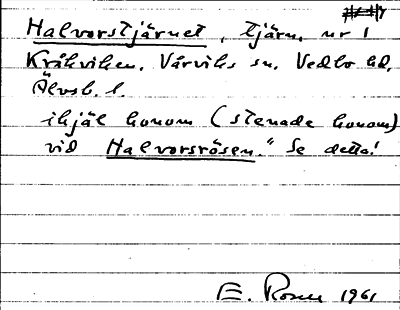 Halvorstjärnet, tjärn, nr 1
Kråkviken, Vårviks sn, Vedbo hd,
Älvsb. l.
ihjäl honom (stenade honom)
vid Halvorsrösen." Se detta!
E. Rosen 1961